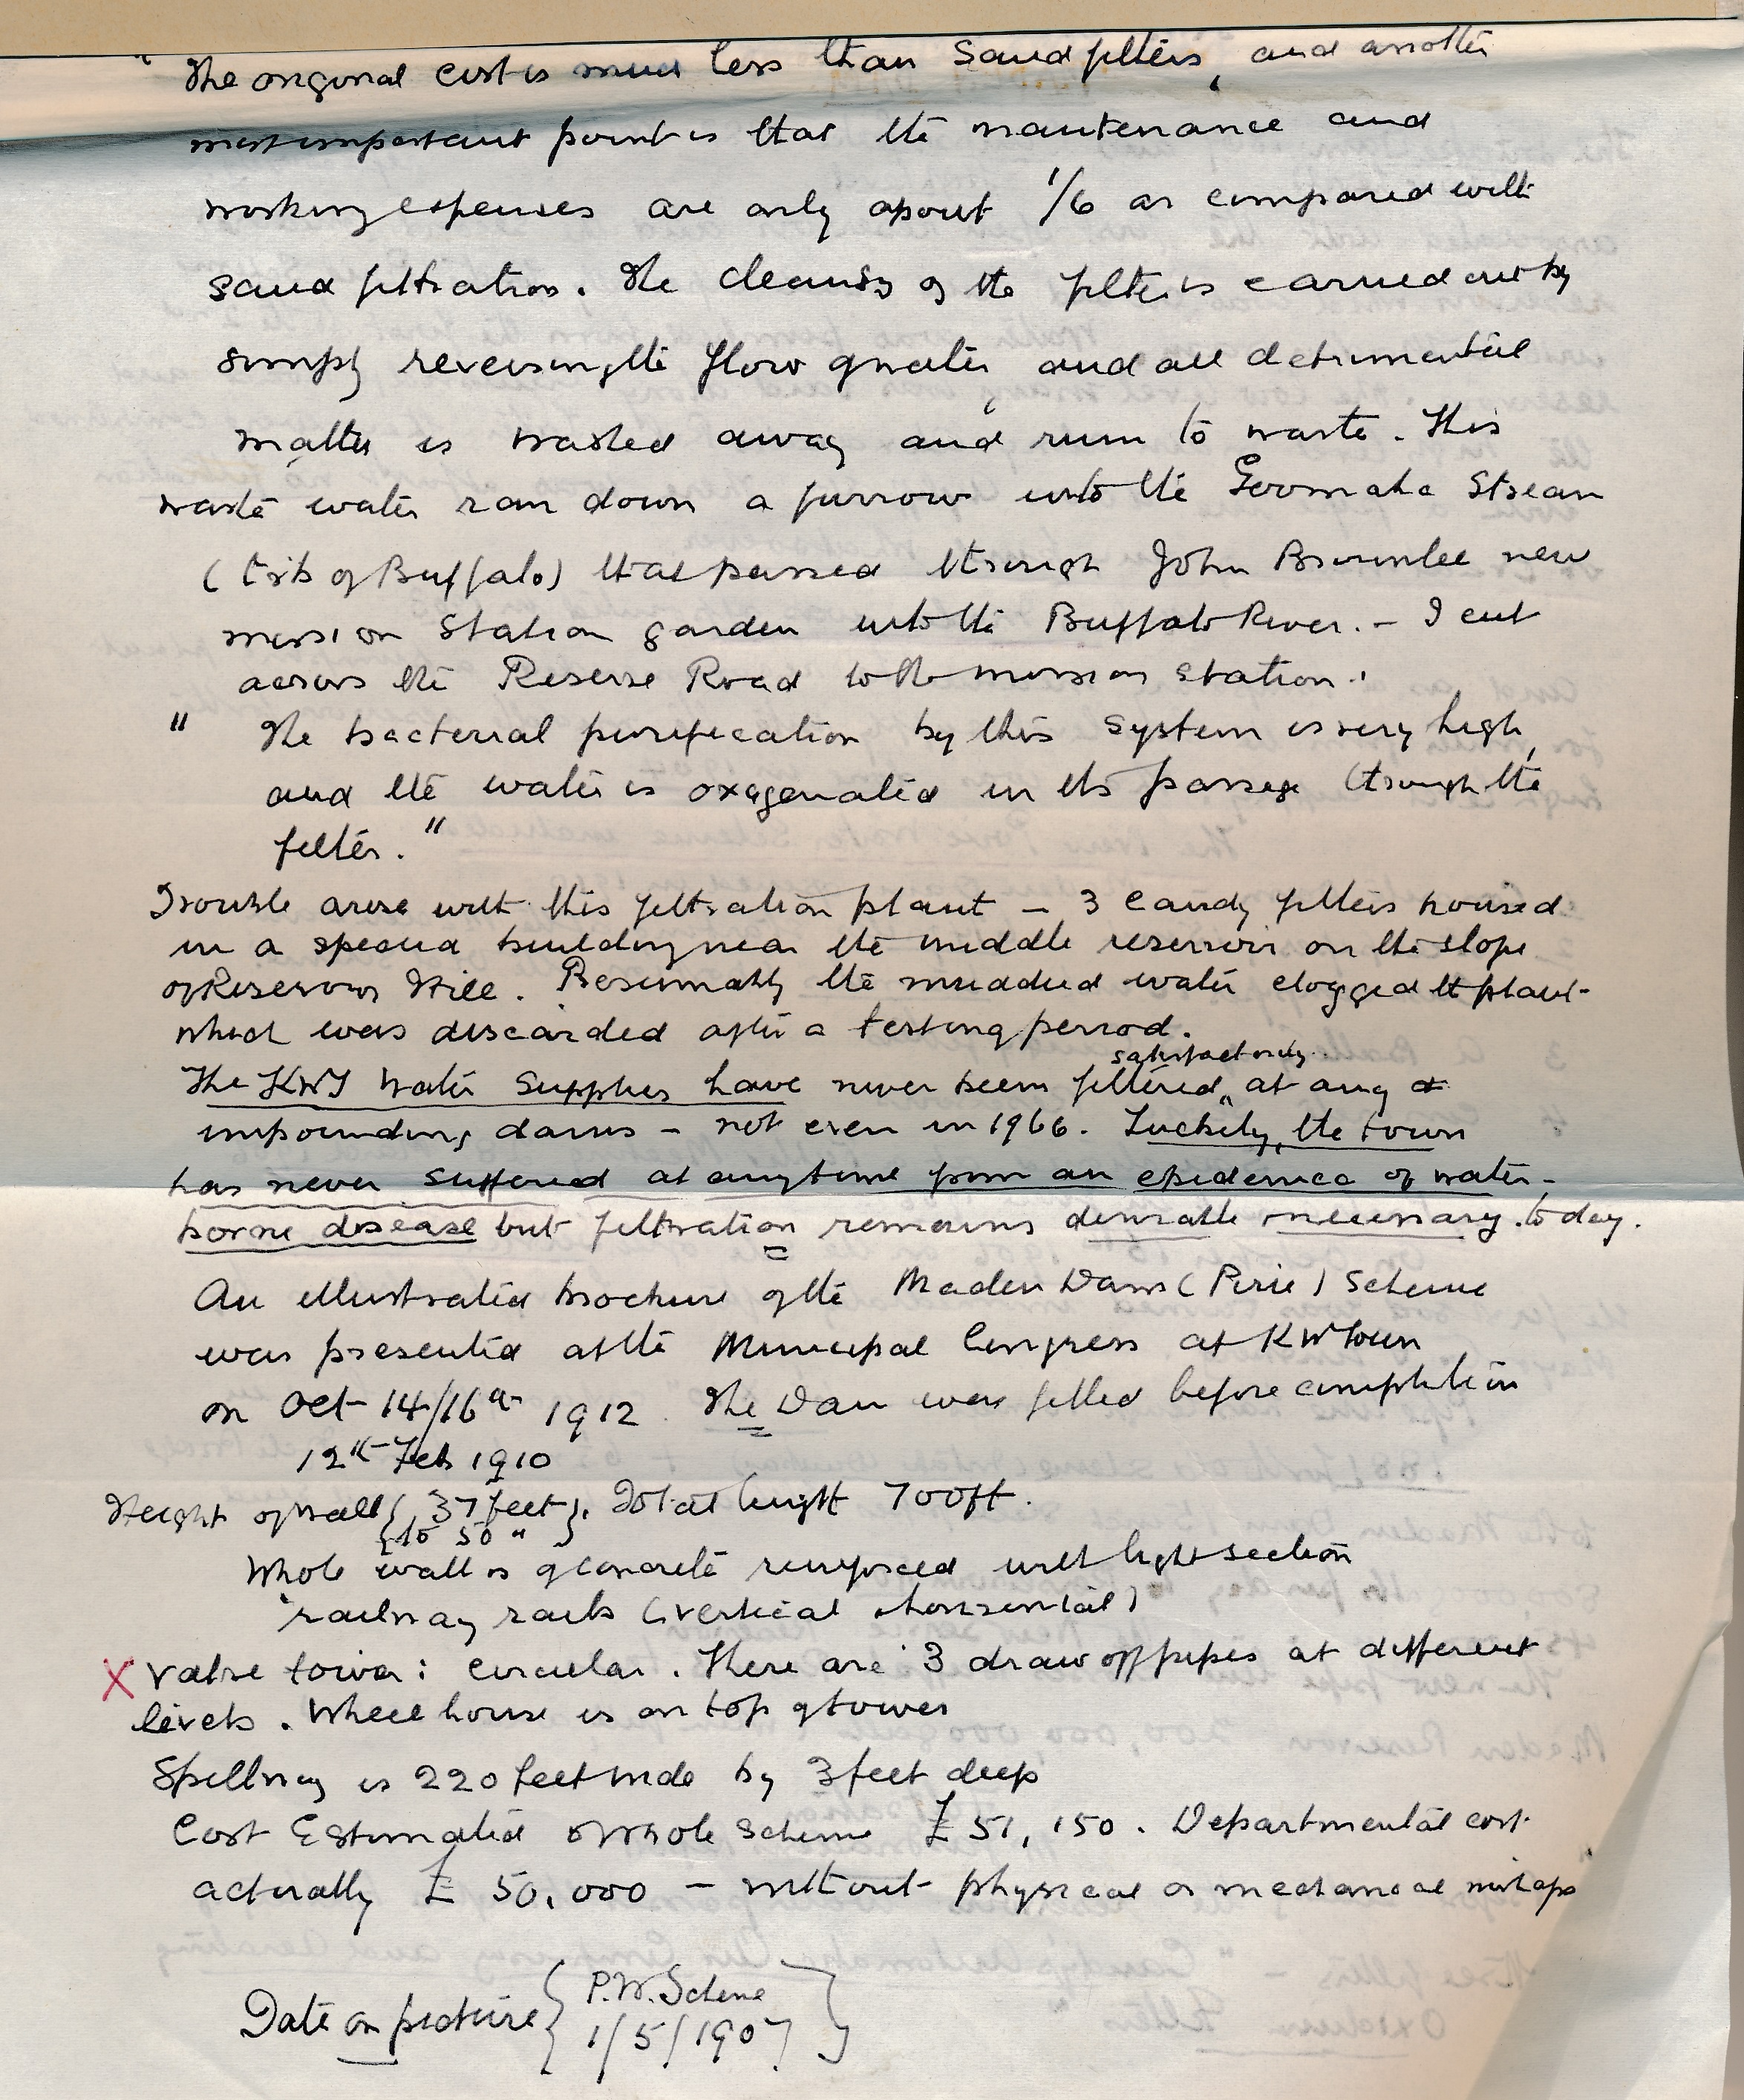 " The original cost is much less than sand filters, and another
most important point is that the maintenance and
working expenses are only about 1/6 as compared with
sand filtration. The cleansing of the filter is carried out by
simply reversing the flow of water, and all detrimental
matter is washed away and run to waste. This
waste water ran down a furrow into the Stream
(trib of Buffalo) that passed through John Brownlee new
mission station garden into the Buffalo River. – I cut
across the Reserve Road to the mission station.
" The bacterial purification by this system is very high,
and the water is oxygenated in its passage through the
filter."
Trouble arose with this filtration plant – 3 Candy filters housed
in a special building near the middle reservoir on the slope
of Reservoir Hill. Presumably the muddied water clogged the plant
which was discarded after a testing period.
satisfactorily
The KWT Water Supplies have never been filtered at any
impounding dams – not even in 1966. Luckily, the town
has never suffered at any time from an epidemic of water-
borne disease but filtration remains desirable necessary today.
An illustrated brochure of the Maden Dam (Pirie) Scheme
was presented at the Municipal Congress at KWTown
on Oct 14/16th 1912. The Dam was filled before completion
12th Feb 1910
Height of wall { 37 feet }. Total length 700ft.
{ to 50 " }
Whole wall is of concrete reinforced with light section
railway rails (vertical & horizontal)
X Valve tower: circular. There are 3 draw off pipes at different
levels. Wheel house is on top of tower
Spillway is 220 feet wide by 3 feet deep
Cost Estimated of whole scheme £51,150. Departmental cost
actually £ 50,000 – without physical or mechanical mishaps
Date on picture { P.W. Scheme }
{ 1/5/1907 }